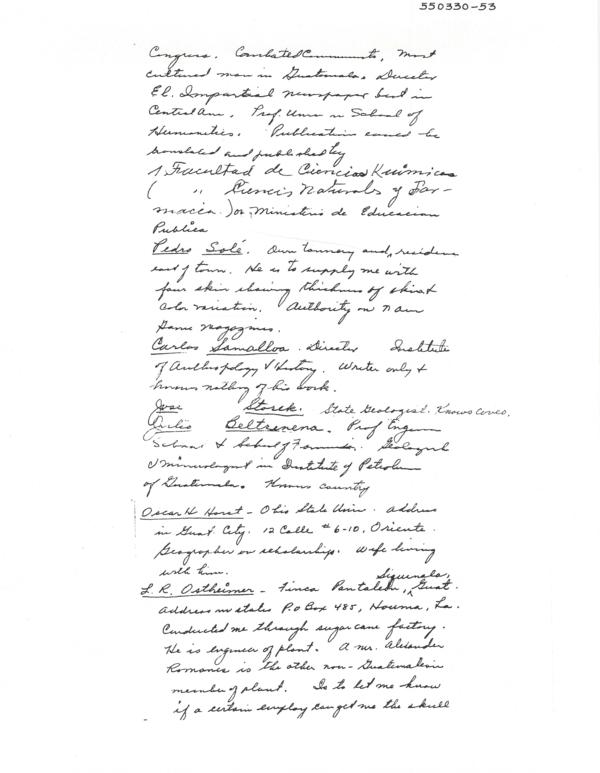 550330-53
Congress. Combated Communists, most
cultured man in Guatemala. Director
El. Impartial newspaper best in
Central Am. Prof. Univ in School of
Humanities. Publication could be
translated and published by
1, Facultad de Ciencias Kuimicas
( " Ciencis Naturales y Far-
macia.) or, Ministerio de Educacion
Publica
Pedro Solé. Own tannery and, residence
east of town. He is to supply me with
four skin showing thickness of skin &
color variation. Authority on N Am
Game magazines.
Carlos Samalloa. Director Institute
of Anthropology & History. Writer only &
knows nothing of his work.
Jose Storek. State Geologist. Knows caves.
Julio Beltrenena. Prof Engin
School & School of Geologist
& mineralogist in Institute of Petroleum
of Guatemala. Knows country
Oscar H Horst - Ohio State Univ. address
in Guat City. 12 Calle #6-10, Oriente.
Geographer on scholarship. Wife living
with him.
Siquinala,
L. R. Ostheimer - Finca Pantaleon, Guat.
Address in states P.O Box 485, Houma, La.
Conducted me through sugar cane factory.
He is engineer of plant. A mr. Alexander
Romanes is the other non-Guatemalain
member of plant. Is to let me know
if a certain employ can get me the skull